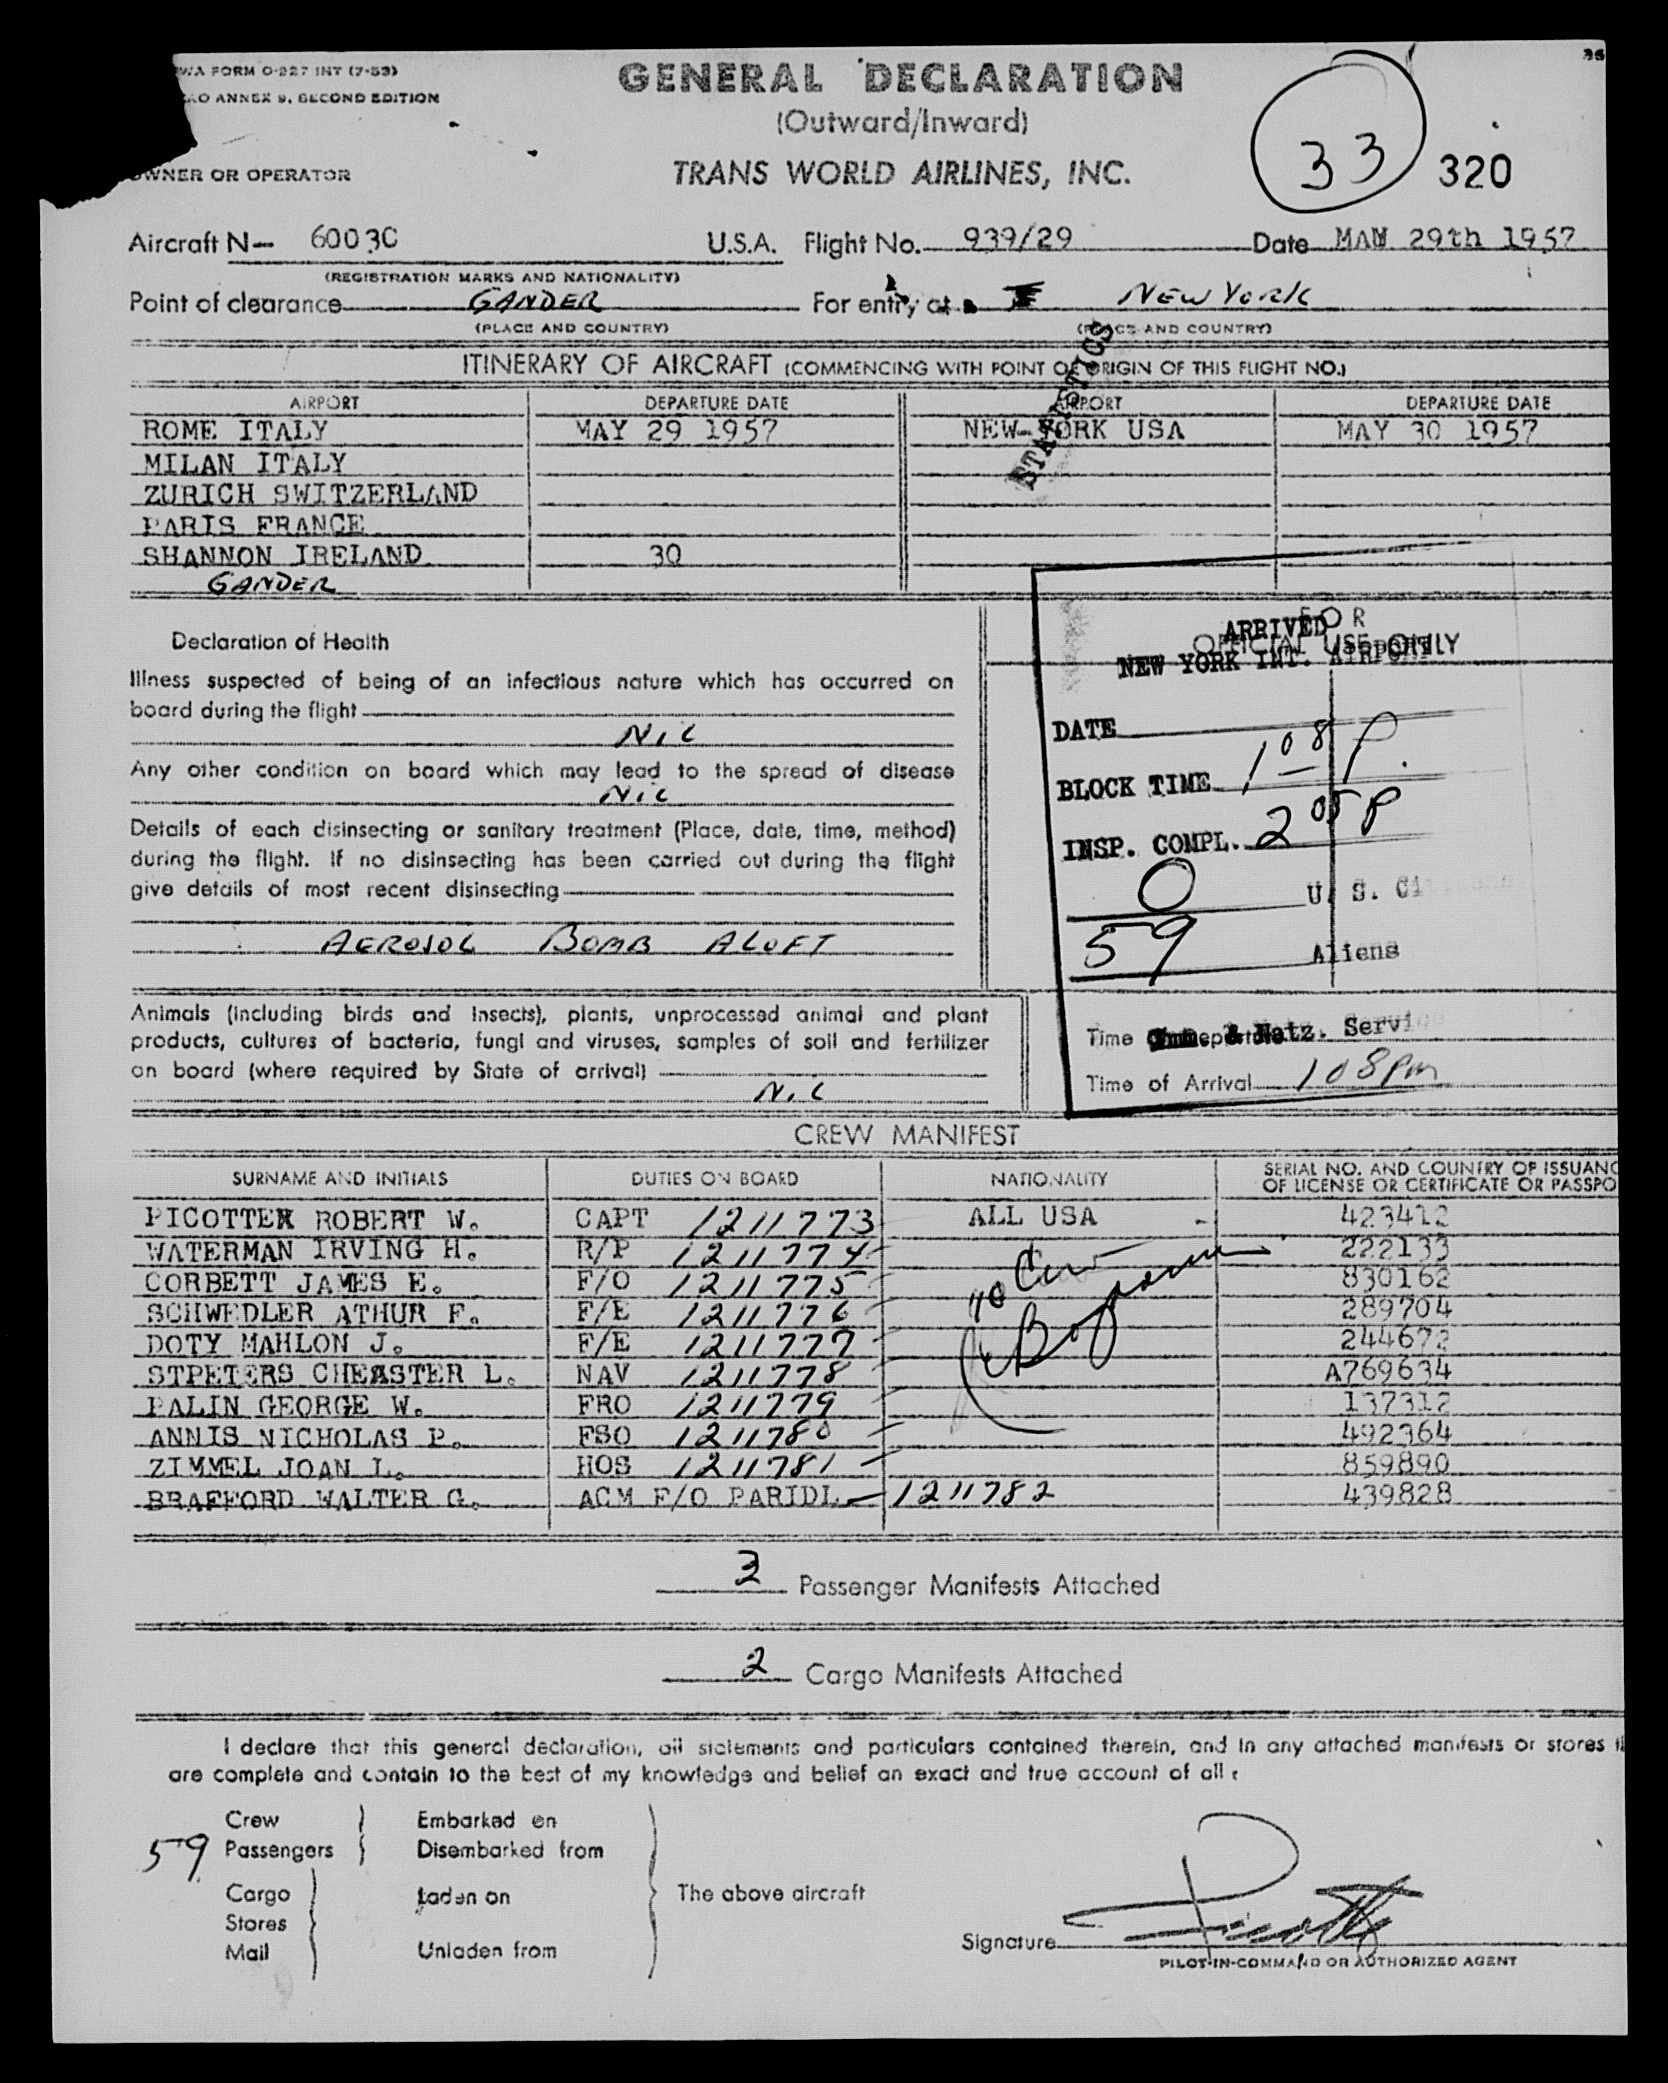 WA FORM O-227 INT (7-53)
AO ANNEX 9, SECOND EDITION
GENERAL DECLARATION
(Outward/Inward)
33
320
OWNER OR OPERATOR
TRANS WORLD AIRLINES, INC.
Aircraft N— 6003C U.S.A. Flight No. 939/29 Date MAY 29th 1957
(REGISTRATION MARKS AND NATIONALITY)
Point of clearance GANDER For entry at NEW YORK
(PLACE AND COUNTRY) (PLACE AND COUNTRY)
STATISTICS
ITINERARY OF AIRCRAFT (COMMENCING WITH POINT OF ORIGIN OF THIS FLIGHT NO.)
AIRPORT DEPARTURE DATE AIRPORT DEPARTURE DATE
ROME ITALY MAY 29 1957 NEW YORK USA MAY 30 1957
MILAN ITALY
ZURICH SWITZERLAND
PARIS FRANCE
SHANNON IRELAND 30
GANDER
Declaration of Health
Illness suspected of being of an infectious nature which has occurred on
board during the flight
NIL
Any other condition on board which may lead to the spread of disease
NIL
Details of each disinsecting or sanitary treatment (Place, date, time, method)
during the flight. If no disinsecting has been carried out during the flight
give details of most recent disinsecting
AEROSOL BOMB ALOFT
FOR
OFFICIAL USE ONLY
ARRIVED
NEW YORK INT. AIRPORT
DATE
BLOCK TIME 1 08 P.
INSP. COMPL. 2 05 P
0 U. S. Citizens
59 Aliens
Imm. & Natz. Service
Time of Departure
Time of Arrival 108 pm
Animals (including birds and insects), plants, unprocessed animal and plant
products, cultures of bacteria, fungi and viruses, samples of soil and fertilizer
on board (where required by State of arrival)
NIL
CREW MANIFEST
SURNAME AND INITIALS DUTIES ON BOARD NATIONALITY SERIAL NO. AND COUNTRY OF ISSUANC
OF LICENSE OR CERTIFICATE OR PASSPO
PICOTTEK ROBERT W. CAPT 1211773 ALL USA - 423412
WATERMAN IRVING H. R/P 1211774 222133
CORBETT JAMES E. F/O 1211775 830162
SCHWEDLER ATHUR F. F/E 1211776 289704
DOTY MAHLON J. F/E 1211777 244672
STPETERS CHEASTER L. NAV 1211778 A769634
PALIN GEORGE W. FRO 1211779 137312
ANNIS NICHOLAS P. FSO 1211780 492364
ZIMMEL JOAN L. HOS 1211781 859890
BRAFFORD WALTER G. ACM F/O PARIDL 1211782 439828
3 Passenger Manifests Attached
2 Cargo Manifests Attached
I declare that this general declaration, all statements and particulars contained therein, and in any attached manifests or stores
are complete and contain to the best of my knowledge and belief an exact and true account of all
Crew Embarked on
59 Passengers Disembarked from
Cargo Laden on The above aircraft
Stores
Mail Unladen from
Signature
PILOT-IN-COMMAND OR AUTHORIZED AGENT